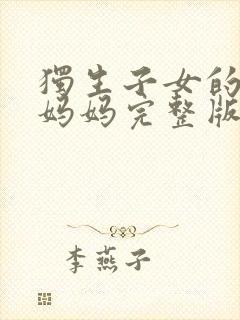 獨生子女的
妈妈完整版
李燕子